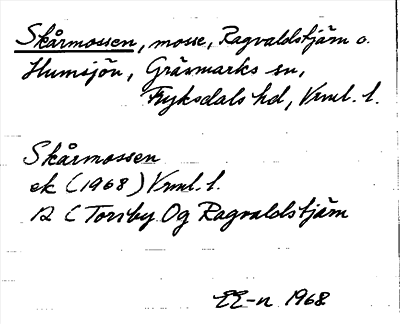 Skårmossen, mosse, Ragvaldstjärn o.
Humsjön, Gräsmarks sn,
Fryksdals hd, Vrml. l.
Skårmossen
ek (1968) Vrml. l.
12 C Torsby Og Ragvaldstjärn
EE-n 1968